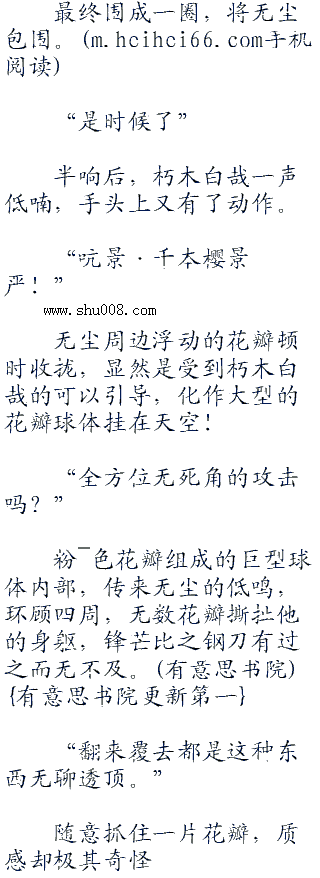 最终围成一圈，将无尘
包围。(m.hcihci66.com手机
阅读)
“是时候了”
半响后，朽木白哉一声
低喃，手头上又有了动作。
“吭景·千本樱景
严！”
www.shu008.com
无尘周边浮动的花瓣顿
时收拢，显然是受到朽木白
哉的可以引导，化作大型的
花瓣球体挂在天空！
“全方位无死角的攻击
吗？”
粉¯色花瓣组成的巨型球
体内部，传来无尘的低鸣，
环顾四周，无数花瓣撕扯他
的身躯，锋芒比之钢刀有过
之而无不及。(有意思书院)
{有意思书院更新第一}
“翻来覆去都是这种东
西无聊透顶。”
随意抓住一片花瓣，质
感却极其奇怪